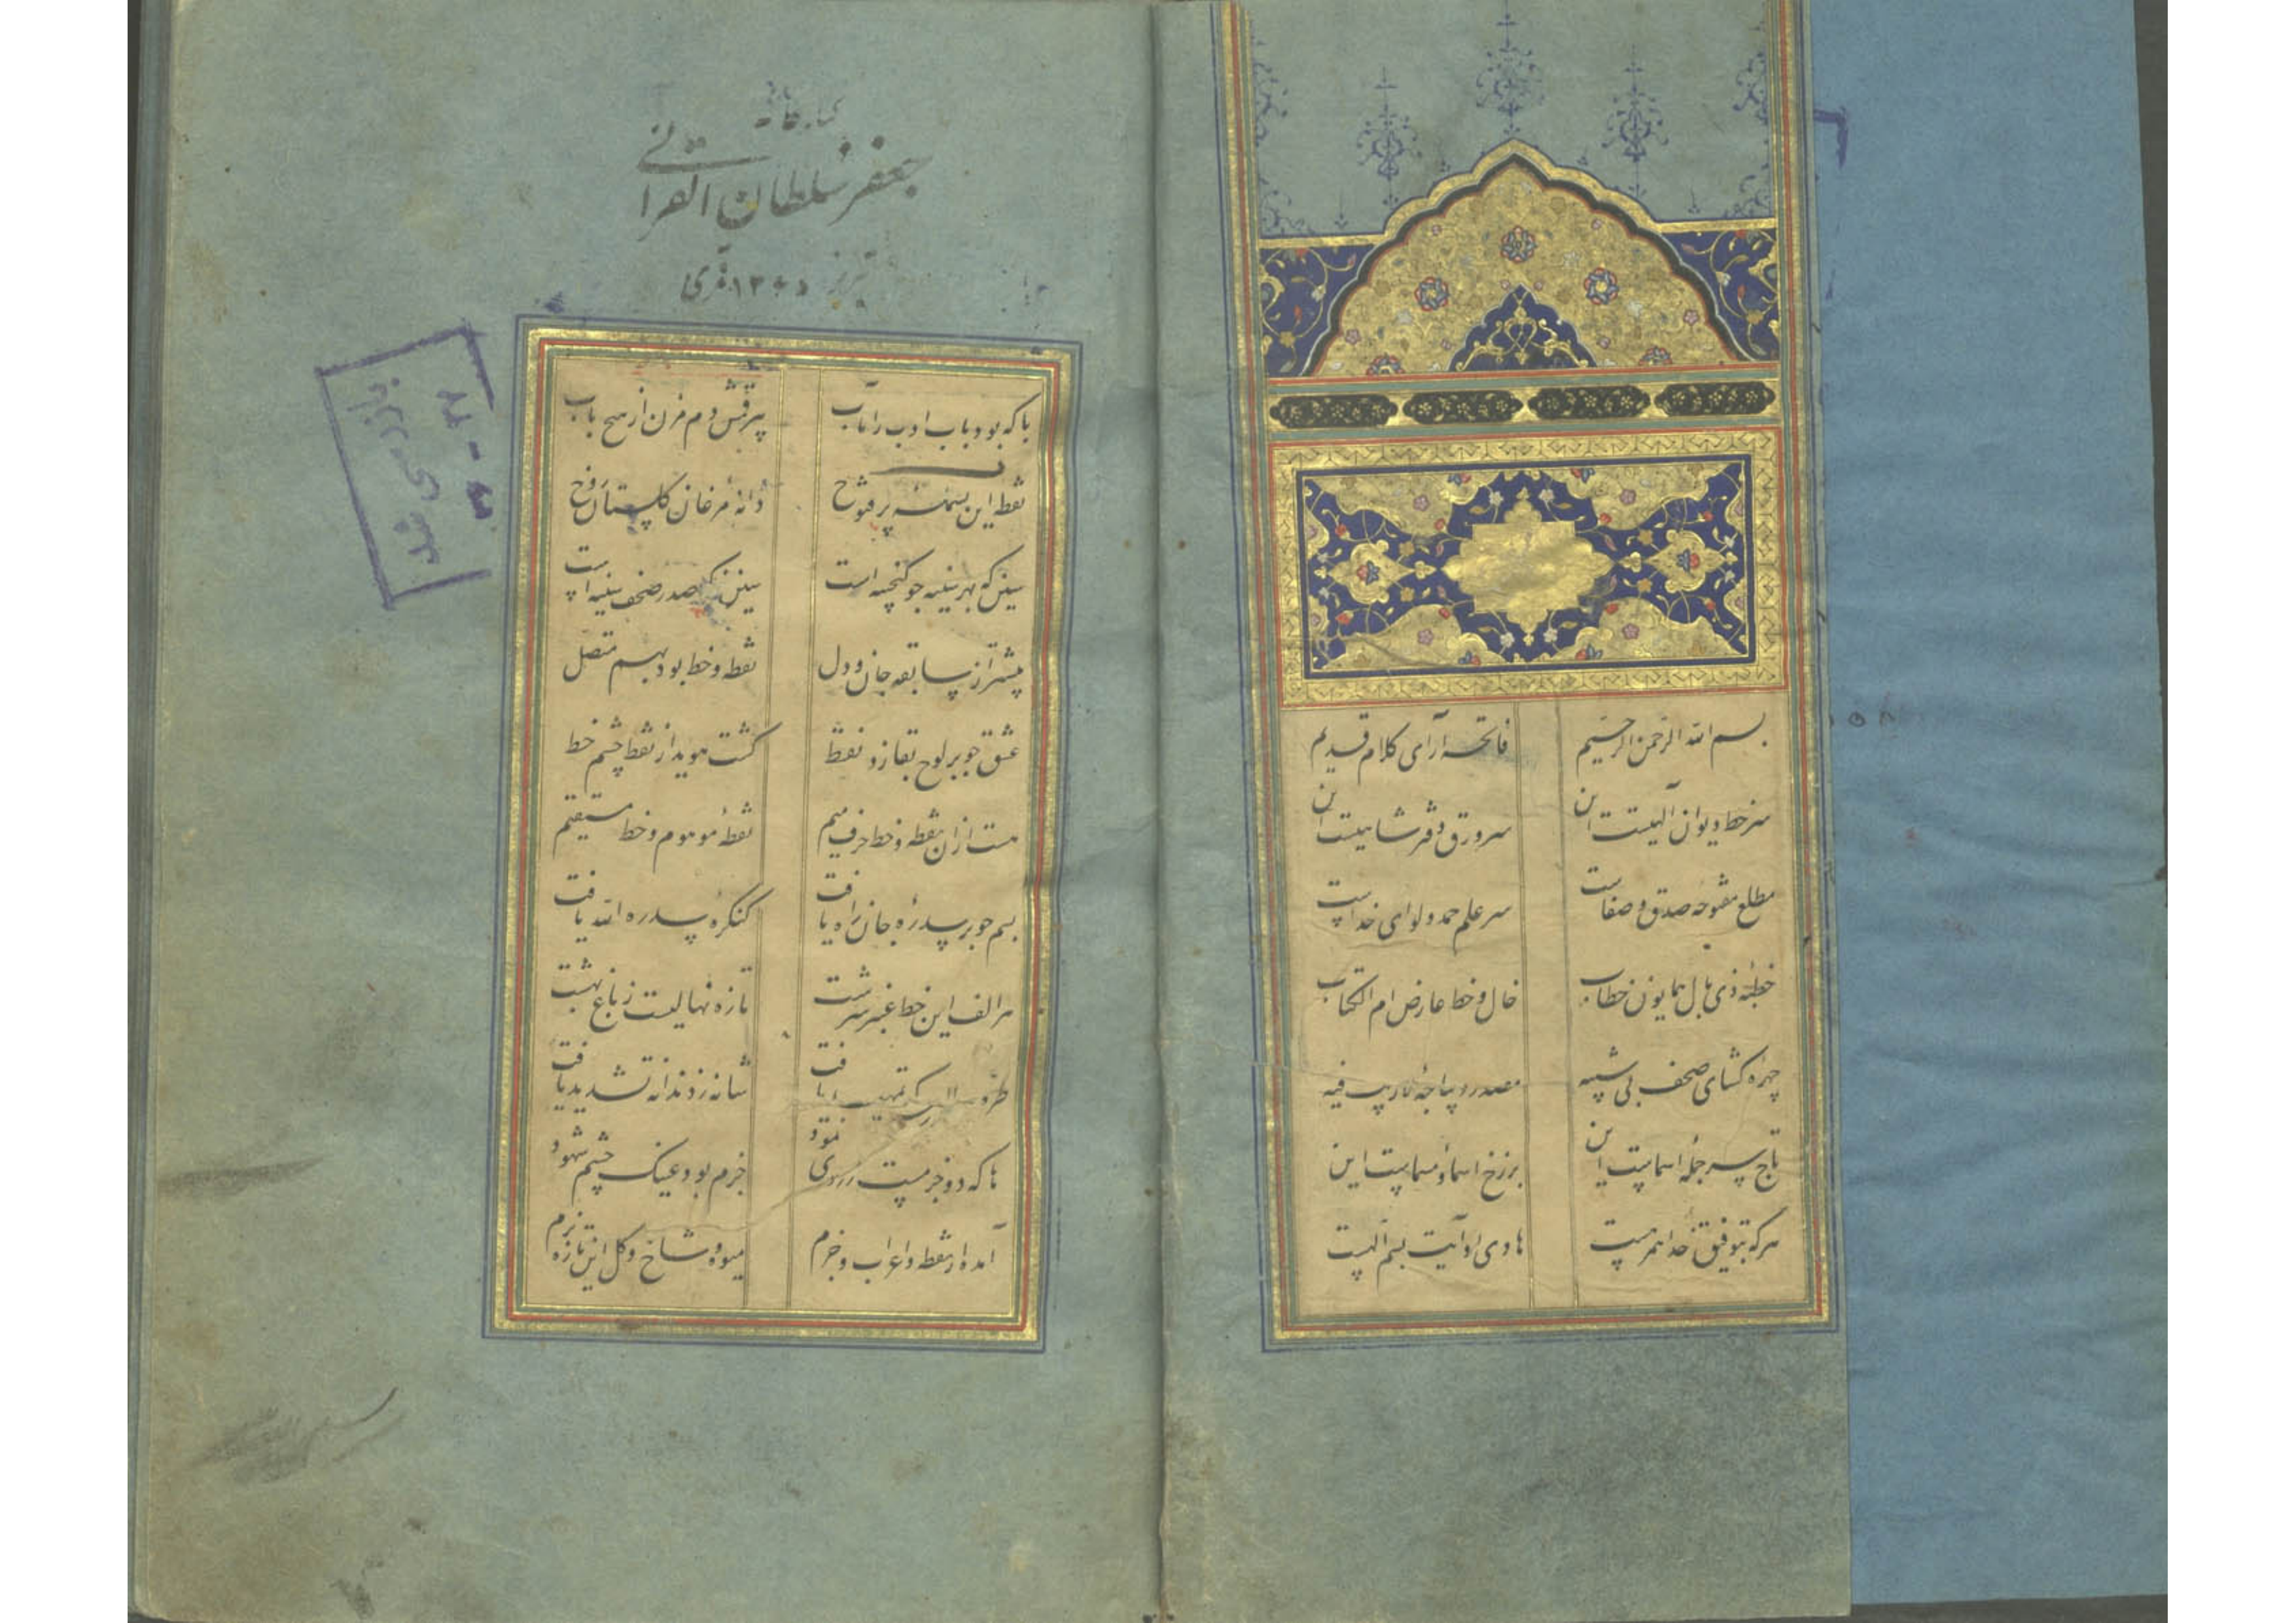 بسم الله الرحمن الرحیم فاتحه آرای کلام قدیم
سر خط دیوان آلهیست این سر ورق دفتر شاهیست این
مطلع مفتوحه صدق و صفاست سر علم حمد و لوای خداست
خطبهٔ ذی بال همایون خطاب خال و خط عارض ام الکتاب
چهره گشای صحف بی شبیه مصدر دیباجهٔ لاریب فیه
تاج سر جملهٔ اسماست این برزخ اسما و مسماست این
هر که بتوفیق خدا همرهست هادی او آیت بسم اللهست
کتابخانه
جعفر سلطان القرائی
تبریز ۱۳۶۵ قمری
با که بود باب ادب را مآب پیرقش و دم مزن از هیچ باب
نقط این بسمله پر فتوح دانه مرغان گلستان روح
سینش که بهر سینه چو گنجینه است سینش که صدر صحف سینه است
پیشتر از سابقه جان و دل نقطه و خط بود بهم متصل
عشق چو بر لوح بقا زد نقط گشت هویدا ز نقط چشم خط
هست ازان نقطه و خط حرف میم نقطهٔ موهوم و خط مستقیم
بسم چو بر سدرهٔ جان راه یافت کنگرهٔ سدره الله یافت
هر الف این خط عنبر سرشت تازه نهالیست ز باغ بهشت
طره یافت شانه زد دندانه تشدید یافت
ها که دو جزمست نمود جزم بود عینک چشم شهود
آمده از نقطه و اعراب و جزم میوه و شاخ و گل این تازه بزم
بازرسی شد
۳ - ۳۷